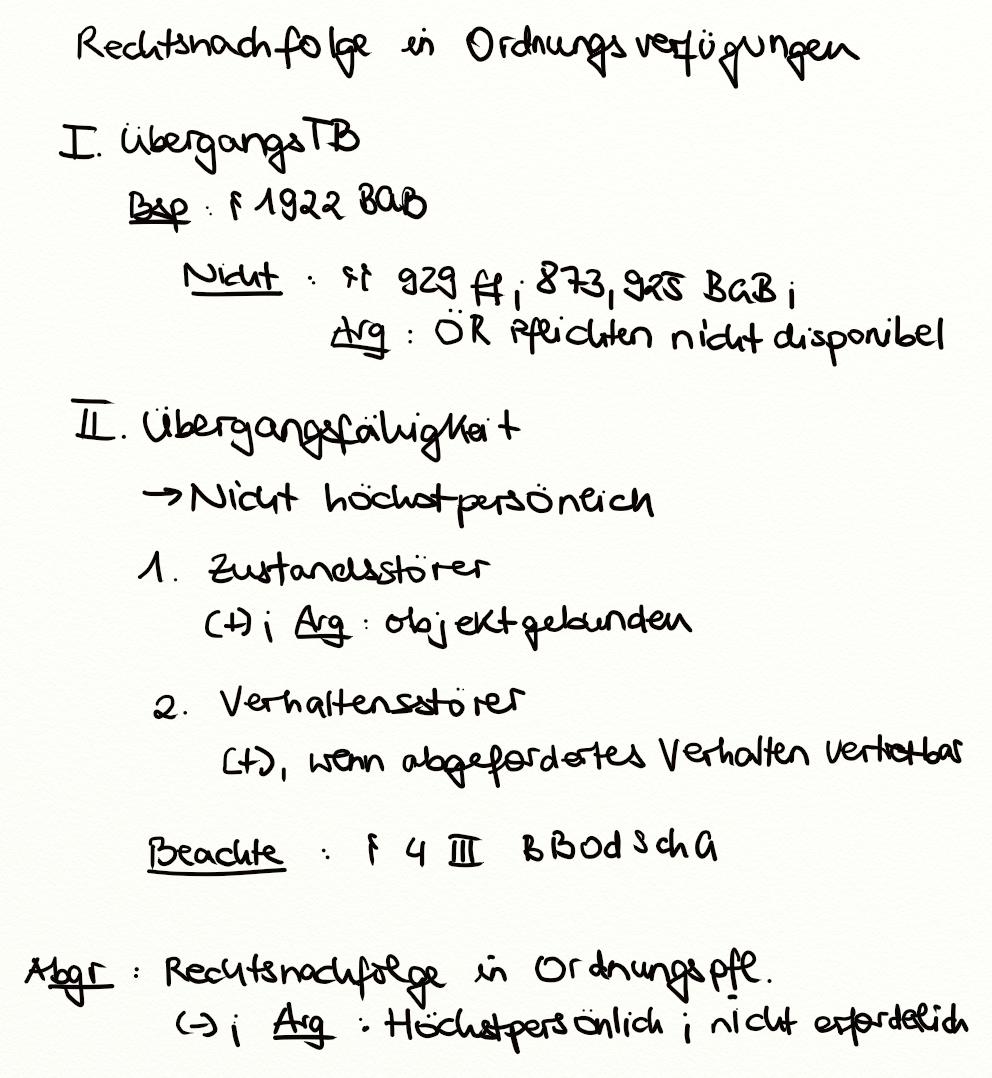 Rechtsnachfolge in Ordnungsverfügungen
I. ÜbergangsTB
Bsp : § 1922 BGB
Nicht : §§ 929 ff ; 873, 925 BGB ;
Arg : ÖR Pflichten nicht disponibel
II. Übergangsfähigkeit
→ Nicht höchstpersönlich
1. Zustandsstörer
(+) ; Arg : objektgebunden
2. Verhaltensstörer
(+), wenn abgefordertes Verhalten vertretbar
Beachte : § 4 III BBodSchG
Abgr : Rechtsnachfolge in Ordnungspfl.
(-) ; Arg : Höchstpersönlich ; nicht erforderlich